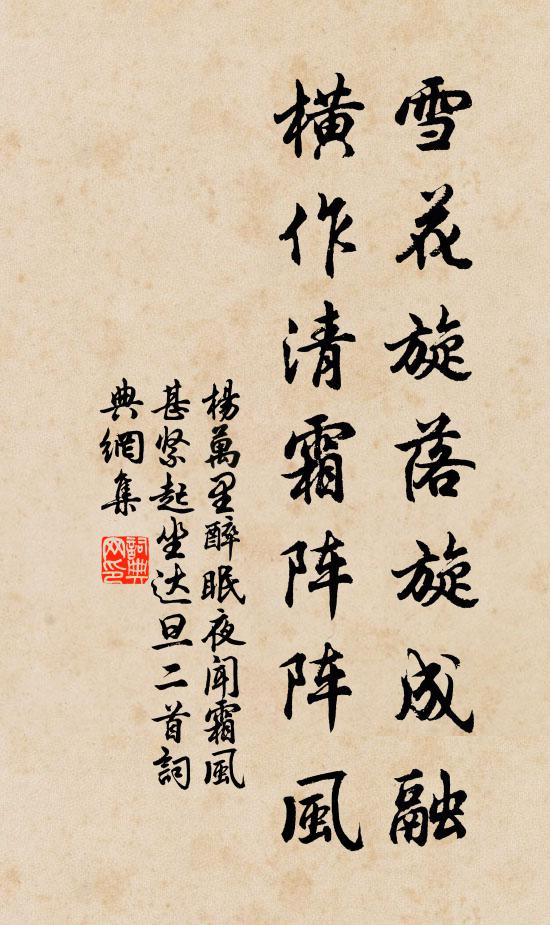 雪花旋落旋成融
横作清霜阵阵風
楊萬里醉眠夜闻霜風
甚紧起坐达旦二首詞
典網集
詞典
网印